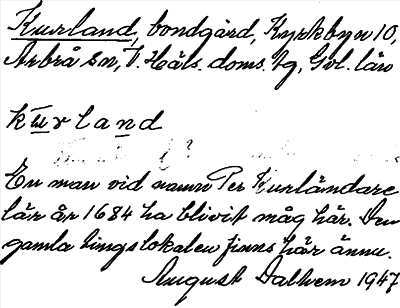 Kurland, bondgård, Kyrkbyn 10,
Arbrå sn, V. Häls. doms. tg, Gvl. län
kurland
En man vid namn Per Kurländare
lär år 1684 ha blivit måg här. Den
gamla tingslokalen finns här ännu.
August Dalhem 1947